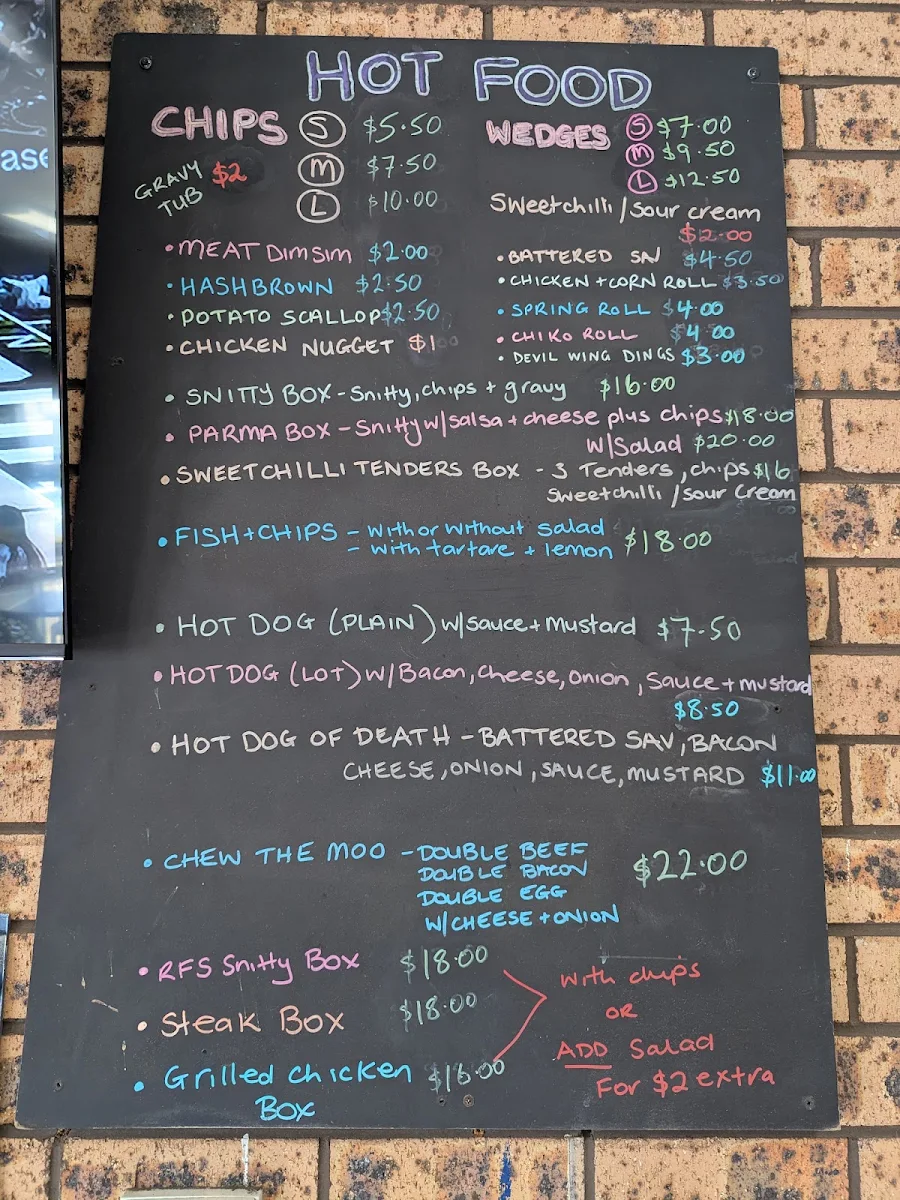 ase
HOT FOOD
CHIPS S $5.50
M $7.50
L $10.00
GRAVY TUB $2
WEDGES S $7.00
M $9.50
L $12.50
Sweetchilli / sour cream
$2.00
• MEAT DimSim $2.00
• HASHBROWN $2.50
• POTATO SCALLOP $2.50
• CHICKEN NUGGET $1
• BATTERED SAV $4.50
• CHICKEN + CORN ROLL $3.50
• SPRING ROLL $4.00
• CHIKO ROLL $4.00
• DEVIL WING DINGS $3.00
• SNITTY BOX - Snitty, chips + gravy $16.00
• PARMA BOX - Snitty w/salsa + cheese plus chips $18.00
w/Salad $20.00
• SWEETCHILLI TENDERS BOX - 3 Tenders, chips $16
Sweetchilli / sour cream
• FISH + CHIPS - with or without salad
- with tartare + lemon $18.00
• HOT DOG (PLAIN) w/sauce + mustard $7.50
• HOT DOG (LOT) w/Bacon, cheese, onion, sauce + mustard
$8.50
• HOT DOG OF DEATH - BATTERED SAV, BACON
CHEESE, ONION, SAUCE, MUSTARD $11.00
• CHEW THE MOO - DOUBLE BEEF $22.00
DOUBLE BACON
DOUBLE EGG
W/CHEESE + ONION
• RFS Snitty Box $18.00
• Steak Box $18.00
• Grilled chicken
Box
with chips
OR
ADD Salad
For $2 extra